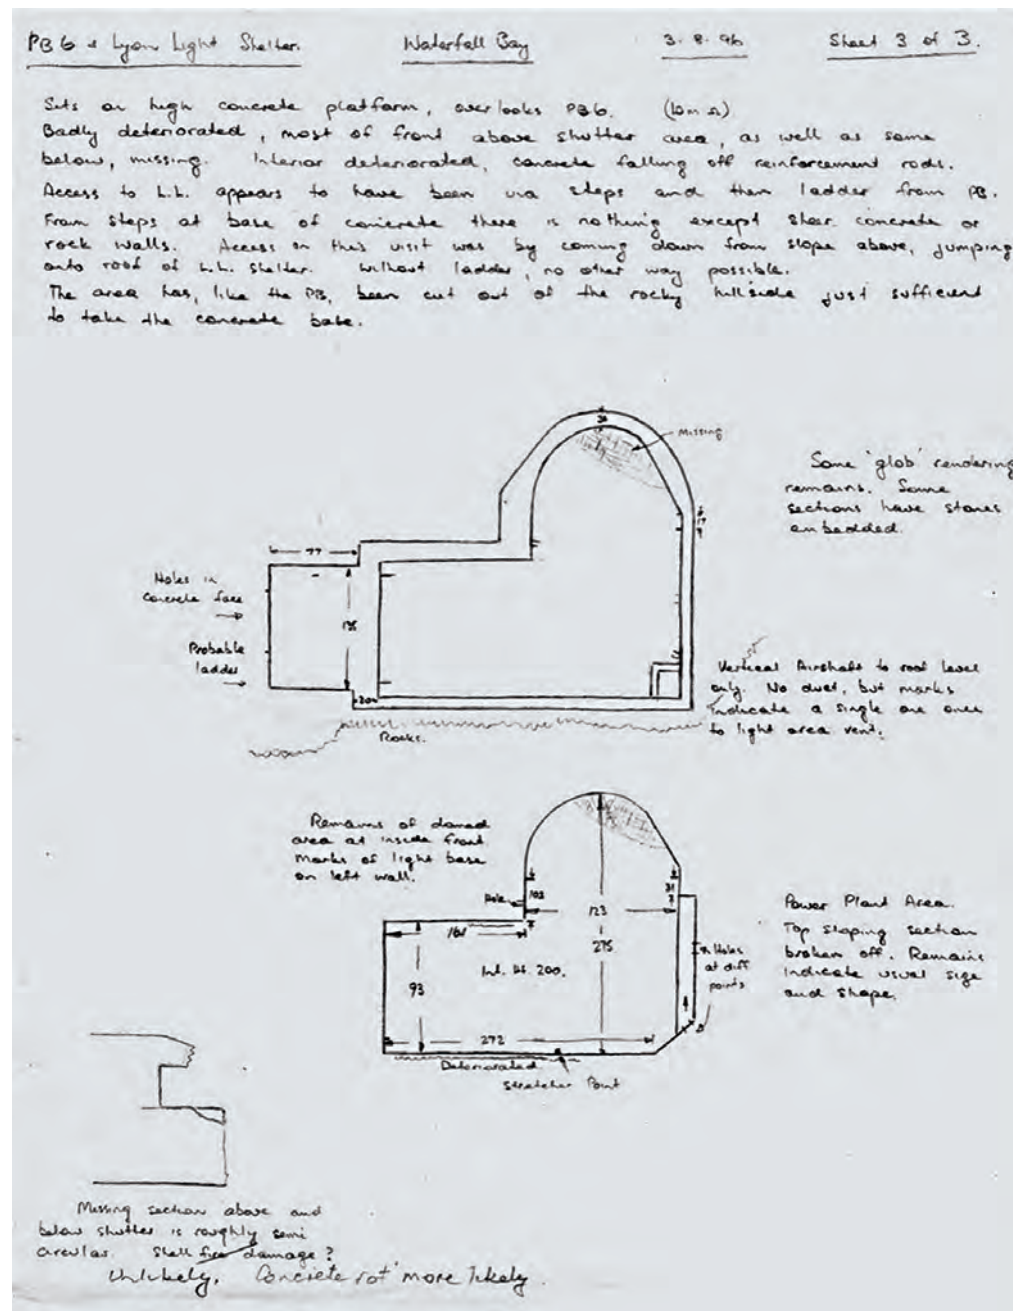 PB6 & Lyon Light Shelter. Waterfall Bay 3.8.96 Sheet 3 of 3.
Sits on high concrete platform, overlooks PB6.
Badly deteriorated, most of front above shutter area, as well as some
below, missing. Interior deteriorated, concrete falling off reinforcement rods.
Access to L.L. appears to have been via steps and then ladder from PB.
From steps at base of concrete there is nothing except sheer concrete or
rock walls. Access on this visit was by coming down from slope above, jumping
onto roof of L.L. shelter. Without ladder, no other way possible.
The area has, like the PB, been cut out of the rocky hillside just sufficient
to take the concrete base.
Missing
Some 'glob' rendering
remains. Some
sections have stones
embedded.
77
Holes in
concrete face
Probable
ladder
Rocks.
Vertical Airshaft to roof level
only. No duct, but marks
indicate a single one once
to light area vent.
Remains of domed
area at inside front
Marks of light base
on left wall.
Hole
102
31
123
161
275
Int. Ht. 200.
93
Holes
at diff
points
272
Deteriorated
Stretcher Point
Power Plant Area.
Top sloping section
broken off. Remains
indicate usual size
and shape.
Missing section above and
below shutter is roughly semi
circular. Shell fire damage?
Unlikely. 'Concrete rot' more likely.